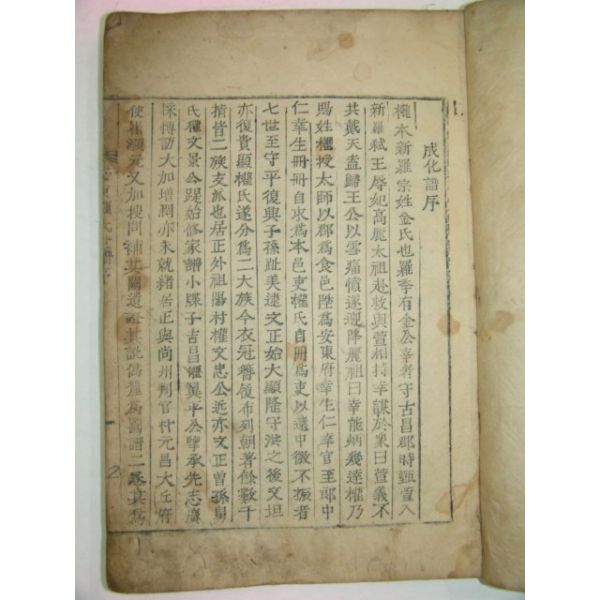 成化譜序
權本新羅宗姓金氏也羅季有金公幸者守古昌郡時甄萱入
新羅弑王辱妃高麗太祖赴救與萱相持幸謀於衆曰萱義不
共戴天盍歸王公以雪痛憤遂迎降麗祖曰幸能炳幾達權乃
賜姓權授太師以郡爲食邑陞爲安東府幸生仁幸官至郎中
仁幸生冊冊自求爲本邑吏權氏自冊爲吏以還中微不振者
七世至守平復興子孫趾美逮文正始大顯隆守洪之後文坦
亦復貴顯權氏遂分爲二大族今衣冠簪履布列朝著倏數千
指皆二族支派也居正外祖陽村權文忠公近亦文正曾孫舅
氏權文景公踶始修家譜小牒子吉昌權翼平公擥承先志廣
採博訪大加增閏亦未就緖居正與尙州判官朴元昌大丘府
使崔灝元又加搜問補其闕遺證其訛僞釐爲圖譜二卷其爲